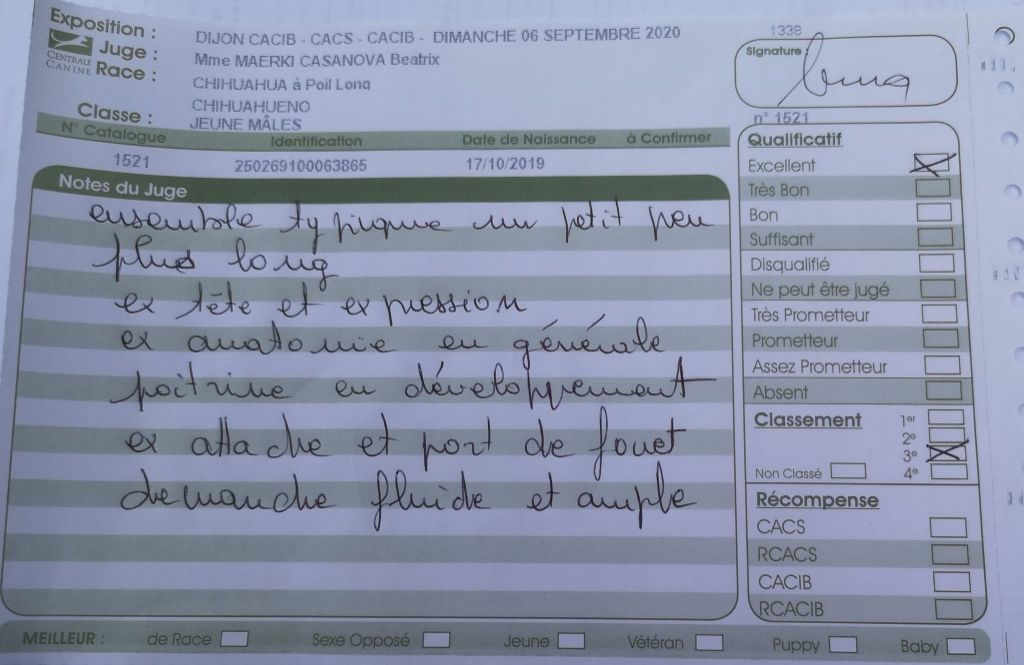 Exposition : DIJON CACIB - CACS - CACIB - DIMANCHE 06 SEPTEMBRE 2020
Juge : Mme MAERKI CASANOVA Beatrix
CENTRALE CANINE
Race : CHIHUAHUA à Poil Long
CHIHUAHUENO
Classe : JEUNE MÂLES
1338
Signature :
n° 1521
N° Catalogue Identification Date de Naissance à Confirmer
1521 250269100063865 17/10/2019
Notes du Juge
ensemble typique un petit peu
plus long
ex tête et expression
ex anatomie en générale
poitrine en développement
ex attache et port de fouet
demanche fluide et ample
Qualificatif
Excellent
Très Bon
Bon
Suffisant
Disqualifié
Ne peut être jugé
Très Prometteur
Prometteur
Assez Prometteur
Absent
Classement 1er
2e
3e
Non Classé 4e
Récompense
CACS
RCACS
CACIB
RCACIB
MEILLEUR : de Race Sexe Opposé Jeune Vétéran Puppy Baby